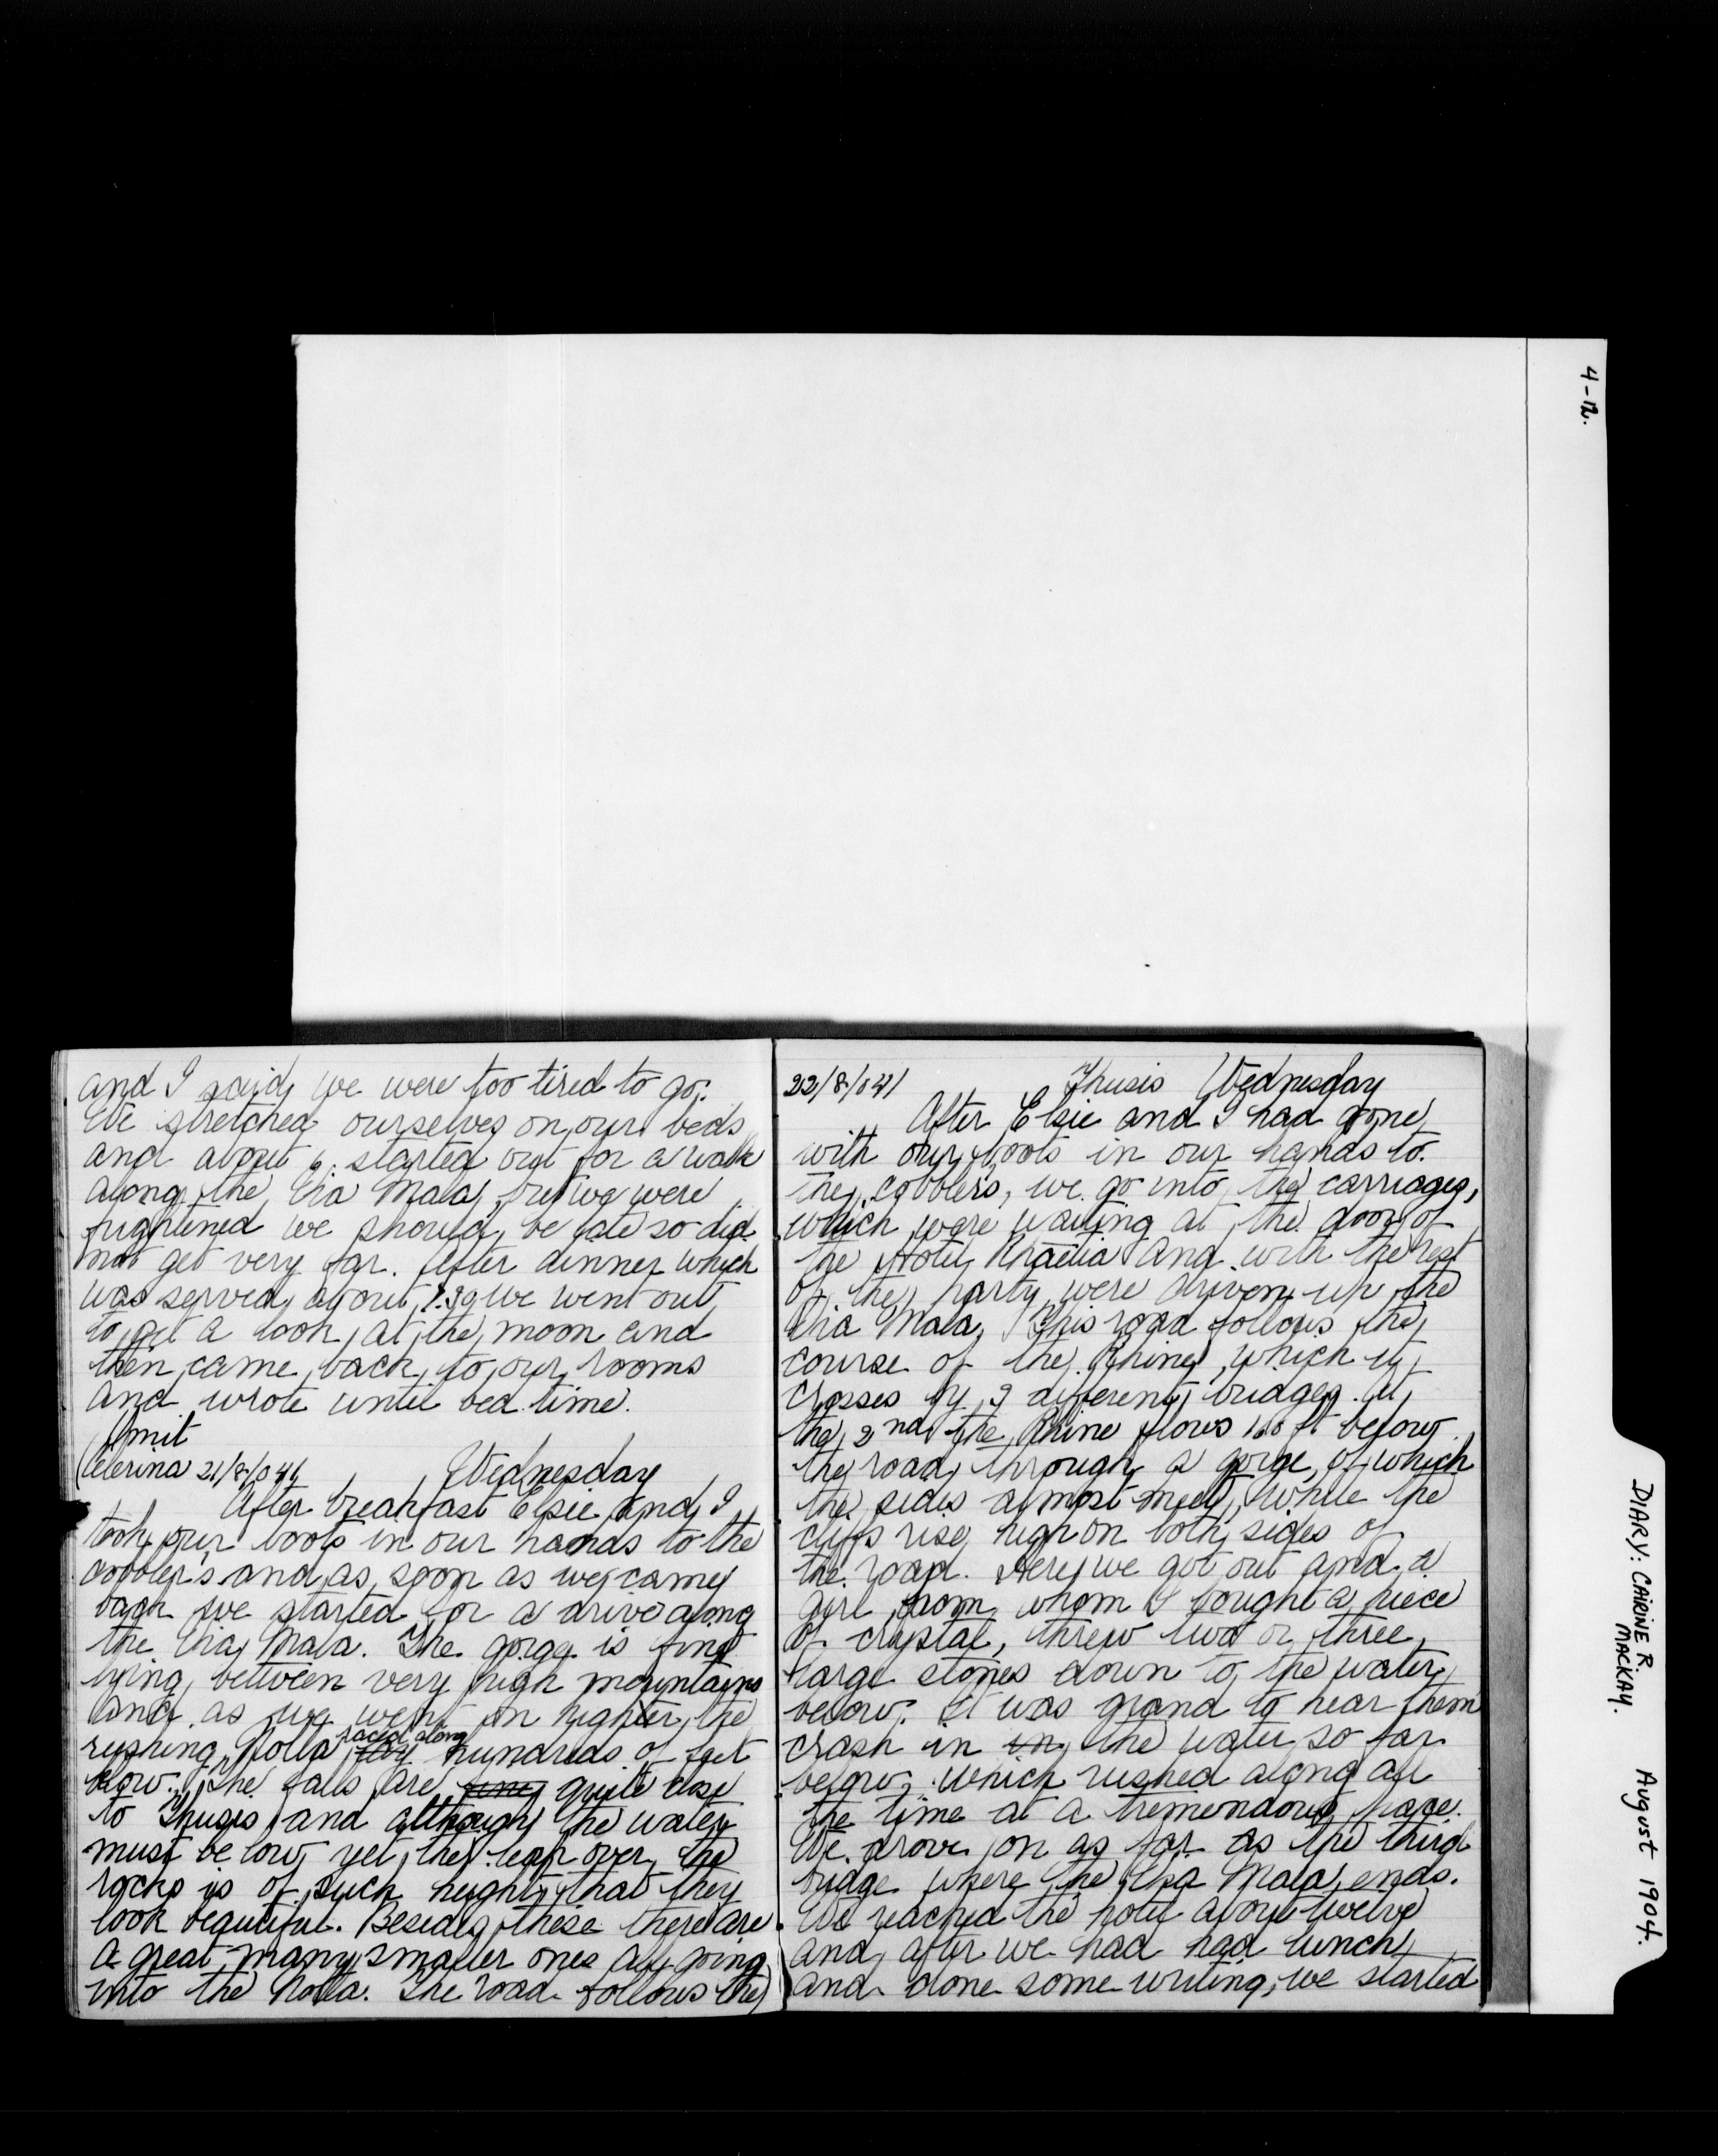 4-12.
DIARY: CAIRINE R.
MACKAY.
August 1904.
and I said we were too tired to go.
We stretched ourselves on our beds
and about 6. started out for a walk
along the Via Mala, but we were
frightened we should be late so did
not get very far. After dinner which
was served about 7.30 we went out
to get a look at the moon and
then came back to our rooms
and wrote until bed time.
Omit
Celerina 21/8/04 Wednesday
After breakfast Elsie and I
took our boots in our hands to the
cobbler's and as soon as we came
back we started for a drive along
the Via Mala. The gorge is fine
lying between very high mountains
and as we went on higher, the
rushing Nolla raced along hundreds of feet
below. The falls are quite close
to Thusis and although the water
must be low yet the leap over the
rocks is of such height that they
look beautiful. Besides these there are
a great many smaller ones all going
into the Nolla. The road follows the
22/8/04 Thusis Wednesday
After Elsie and I had gone
with our boots in our hands to
the cobblers, we go into the carriages,
which were waiting at the door of
the Hotel Rhaetia and with the rest
of the party were driven up the
Via Mala. This road follows the
course of the Rhine, which it
crosses by 3 different bridges. At
the 2nd the Rhine flows 160 ft below
the road through a gorge, of which
the sides almost meet, while the
cliffs rise high on both sides of
the road. Here we got out and a
girl from whom I bought a piece
of crystal, threw two or three
large stones down to the water
below. It was grand to hear them
crash in in the water so far
below, which rushed along all
the time at a tremendous pace.
We drove on as far as the third
bridge where the Via Mala ends.
We reached the hotel about twelve
and after we had had lunch
and done some writing, we started